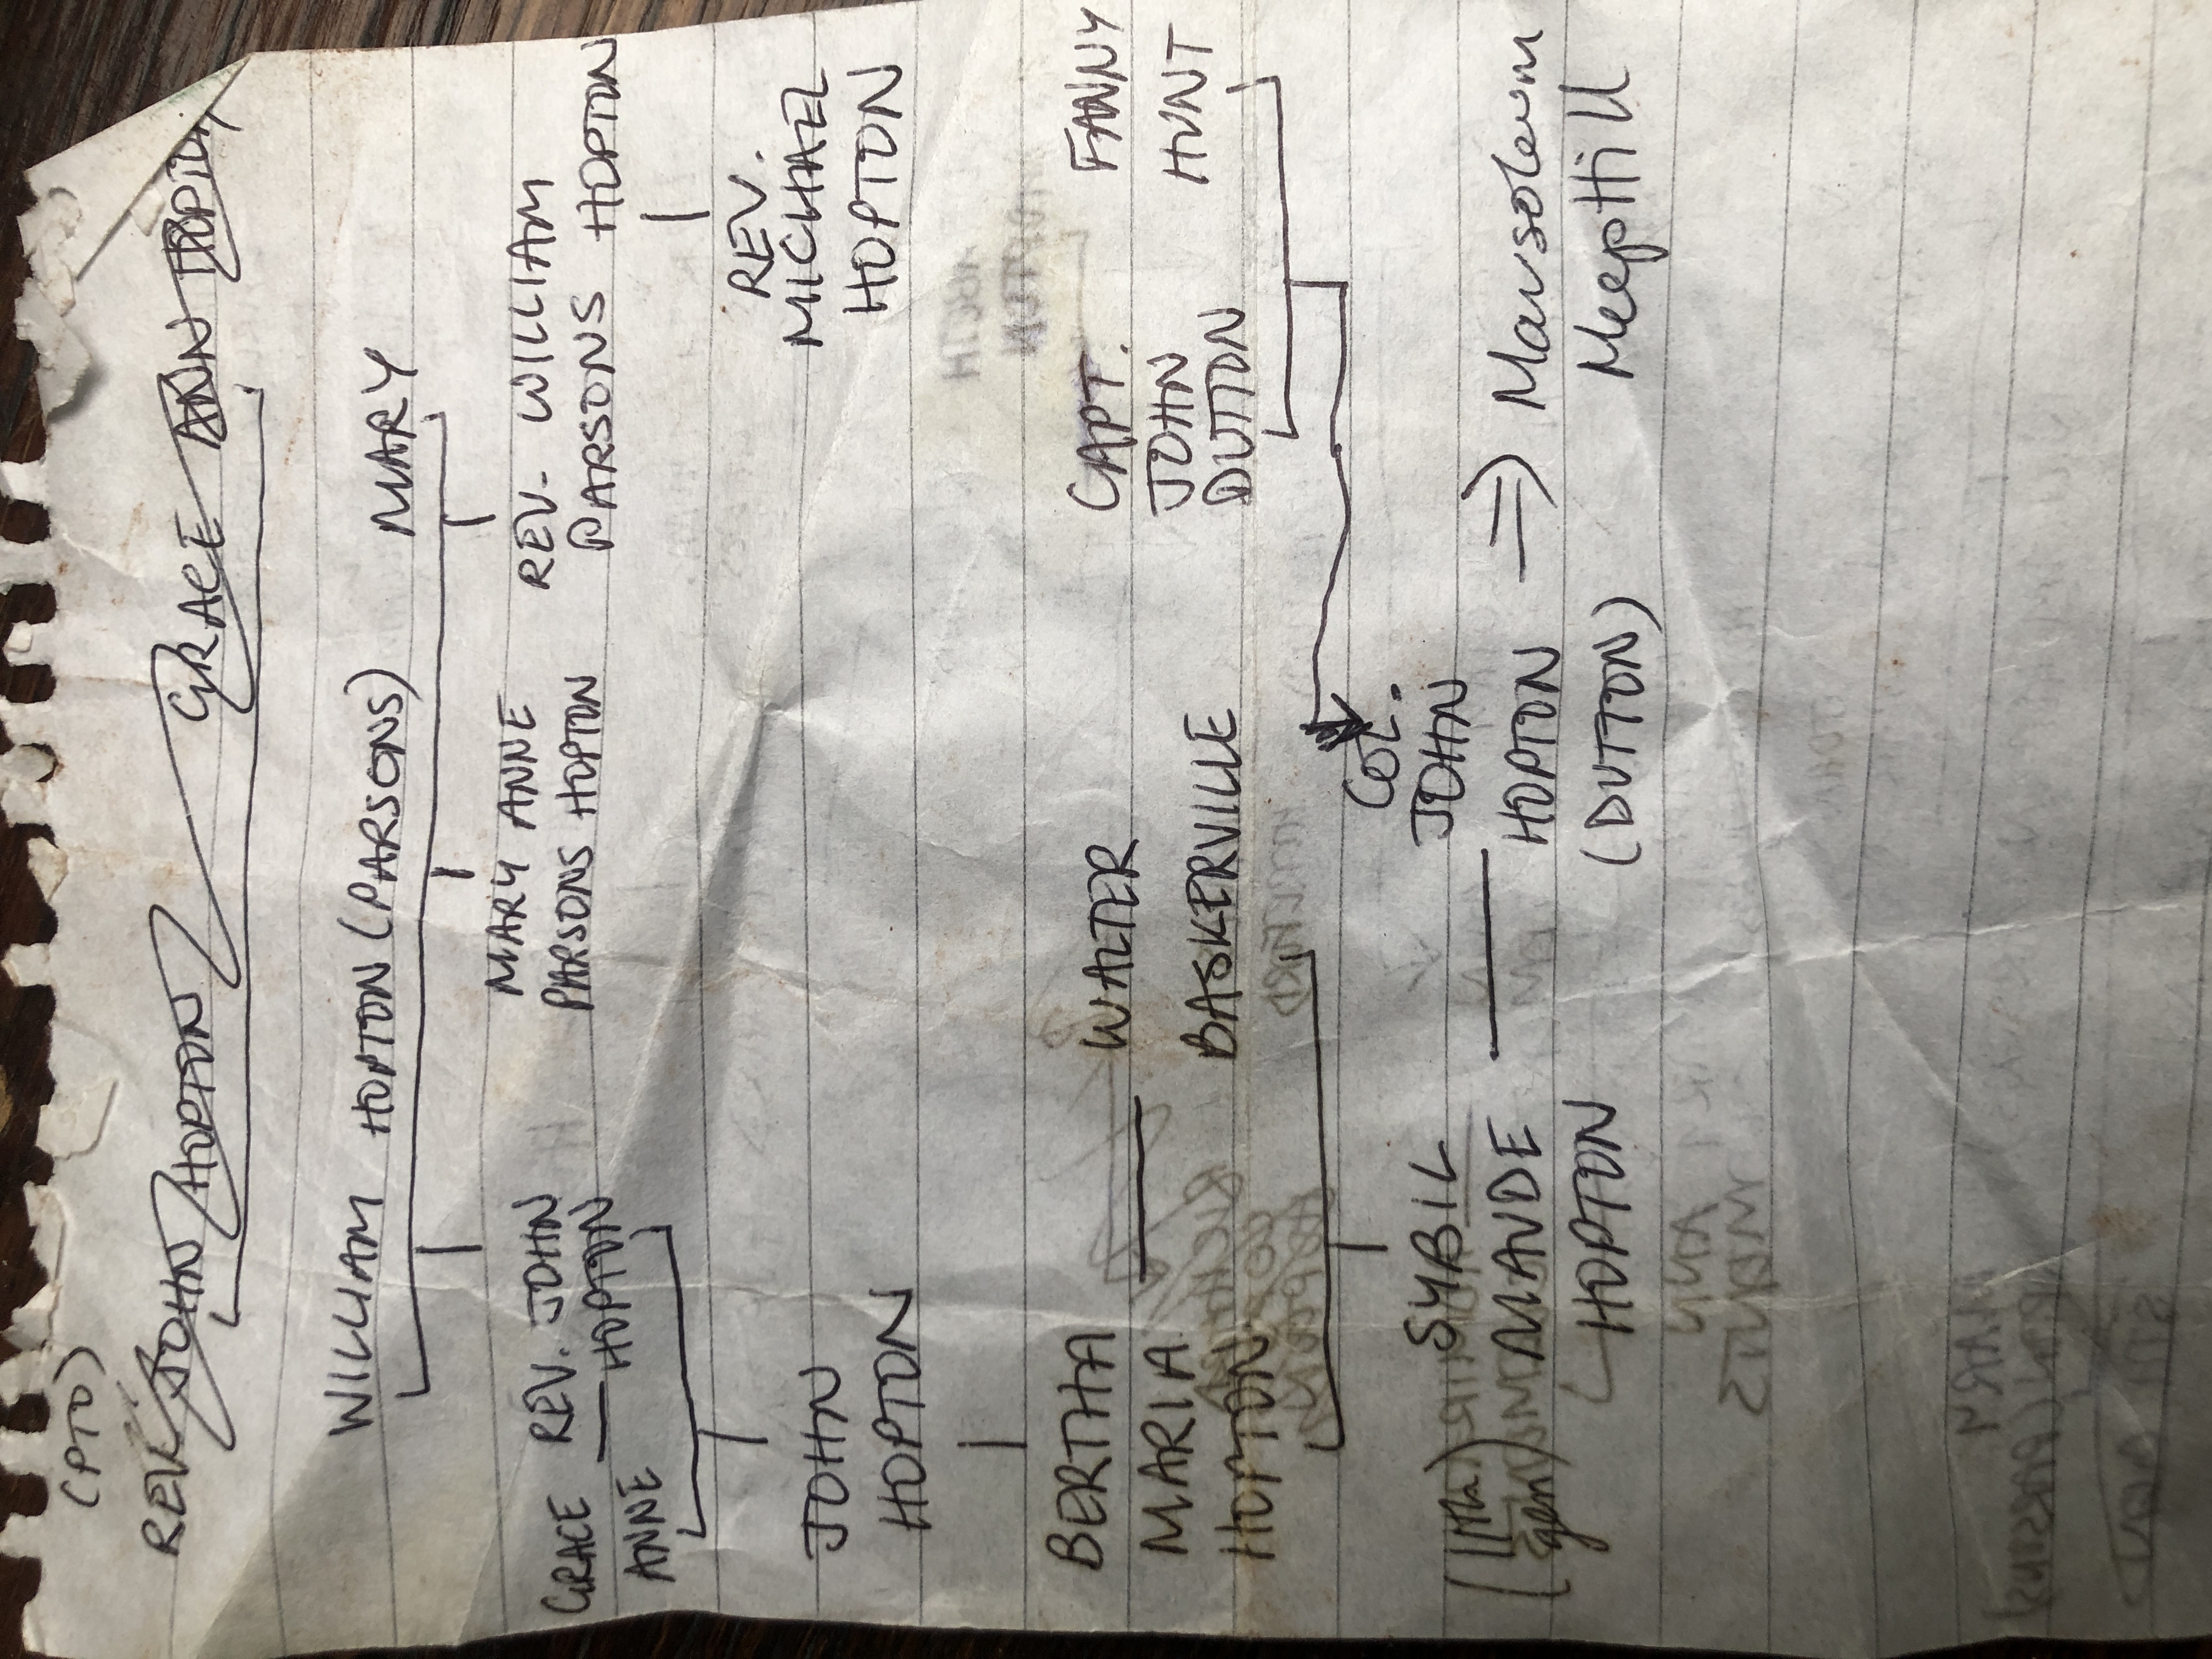 (PTO)
REV. JOHN HOPTON GRACE ANN HOPTON
WILLIAM HOPTON (PARSONS) MARY
GRACE ANNE
REV. JOHN HOPTON
MARY ANNE
PARSONS HOPTON
REV. WILLIAM
PARSONS HOPTON
JOHN
HOPTON
REV.
MICHAEL
HOPTON
BERTHA
MARIA
HOPTON
WALTER
BASKERVILLE
CAPT.
JOHN
DUTTON
FANNY
HUNT
(11th
gen)
SYBIL
MAUDE
HOPTON
COL.
JOHN
HOPTON
(DUTTON)
⇒ Mausoleum
Meephill